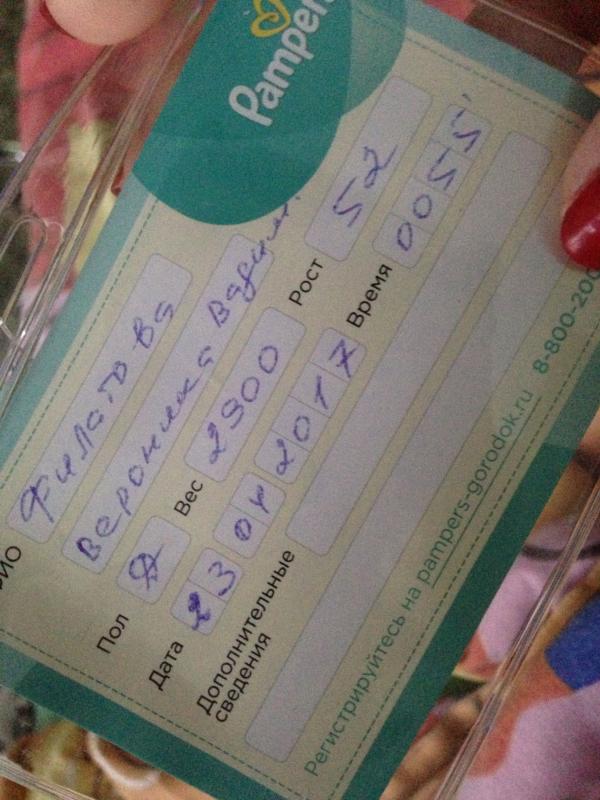 Pampers
ФИО Филатова
Вероника Вадим.
Пол Д Вес 2900 Рост 52
Дата 23 04 2017 Время 0055
Дополнительные
сведения
Регистрируйтесь на pampers-gorodok.ru 8-800-200